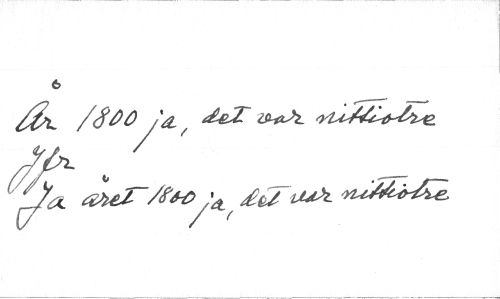 År 1800 ja, det var nittiotre
Jfr
Ja året 1800 ja, det var nittiotre